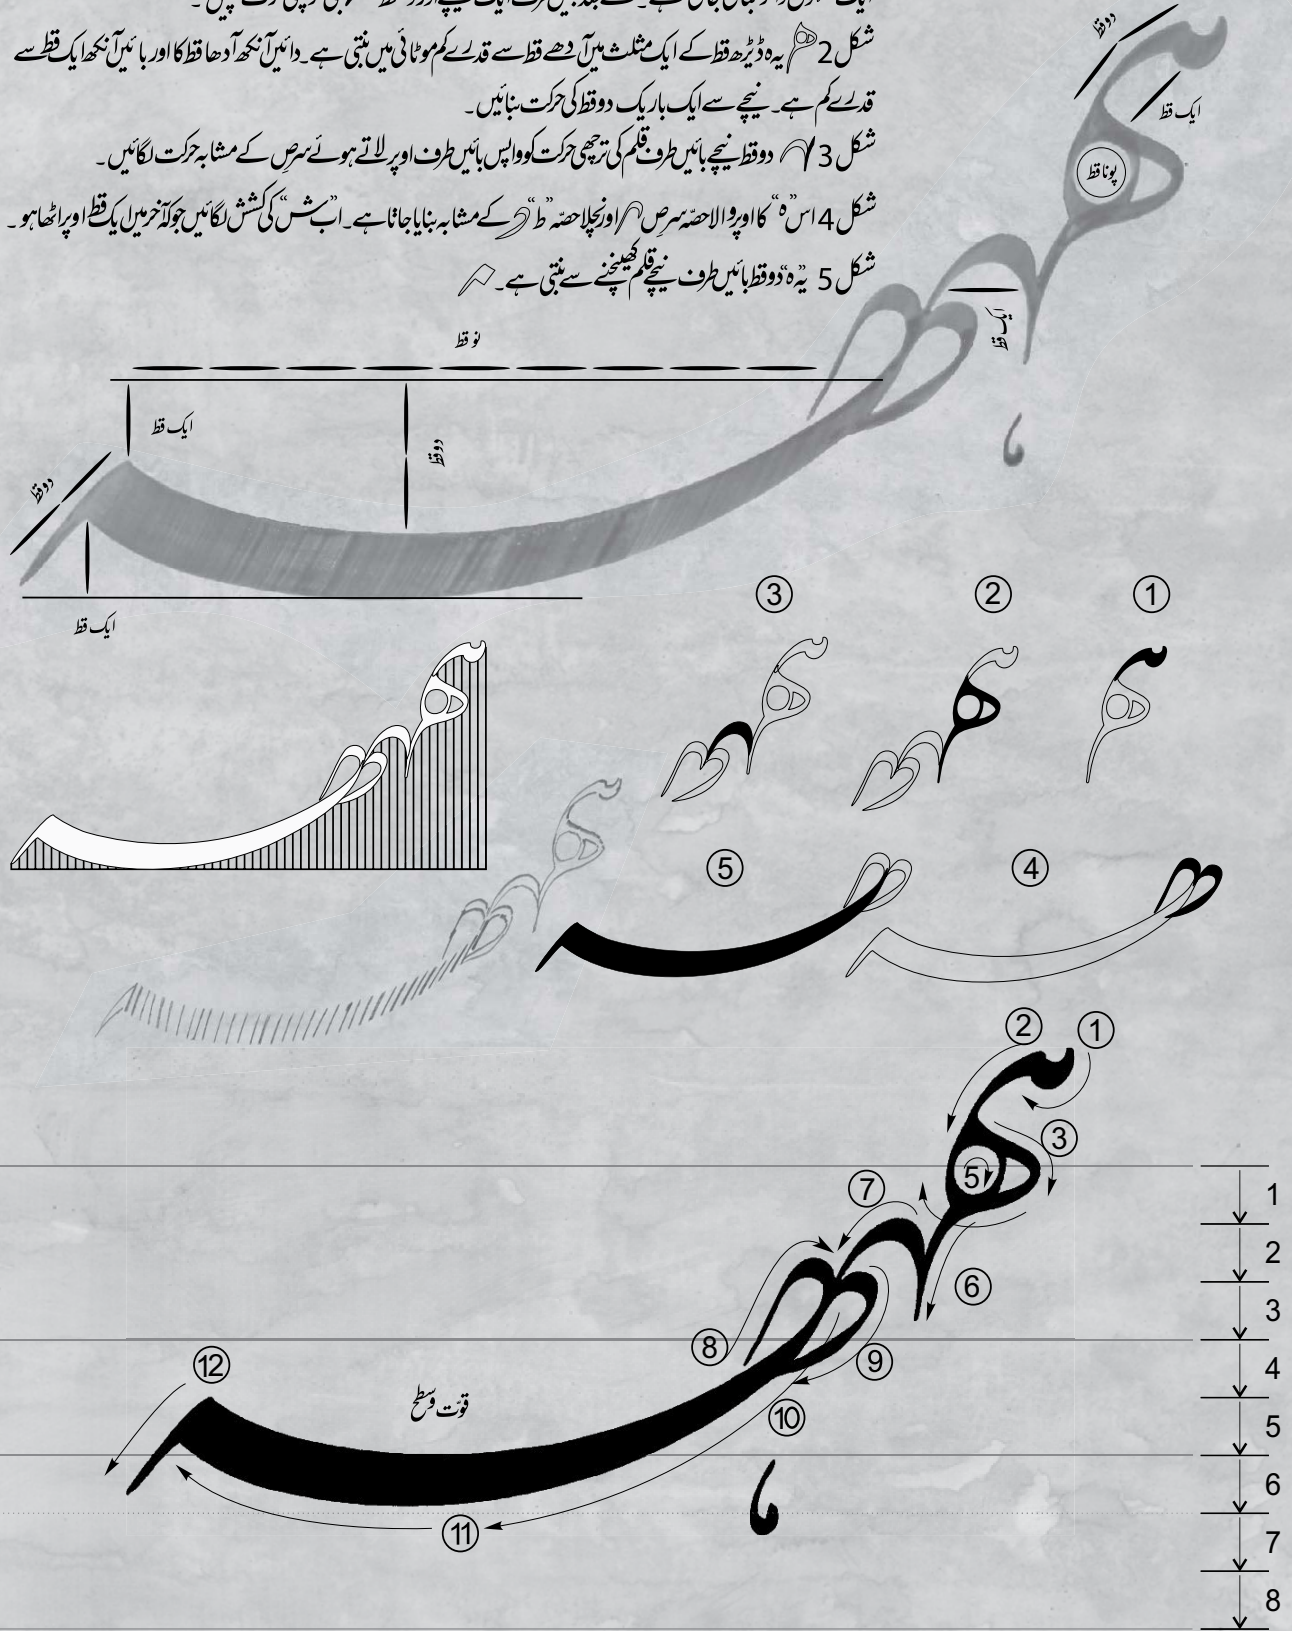 شکل 2 یہ ہ ڈیڑھ قط کے ایک مثلث میں آدھے قط سے قدرے کم موٹائی میں بنتی ہے۔ دائیں آنکھ آدھا قط کا اور بائیں آنکھ ایک قط سے
قدرے کم ہے۔ نیچے سے ایک باریک دو قط کی حرکت بنائیں۔
شکل 3 دو قط نیچے بائیں طرف قلم کی ترچھی حرکت کو واپس بائیں طرف اوپر لاتے ہوئے سرص کے مشابہ حرکت لگائیں۔
شکل 4 اس ”ہ“ کا اوپر والا حصّہ سرص اور نچلا حصّہ ”ط“ کے مشابہ بنایا جاتا ہے۔ اب ”ش“ کی کشش لگائیں جو کہ آخر میں ایک قط اوپر اٹھا ہو۔
شکل 5 یہ ”ہ“ دو قط بائیں طرف نیچے قلم کھینچنے سے بنتی ہے۔
دو قط
ایک قط
پونا قط
ایک قط
نو قط
ایک قط
دو قط
دو قط
ایک قط
1
2
3
4
5
1
2
3
5
6
7
8
9
10
11
12
قوّت و سطح
1
2
3
4
5
6
7
8